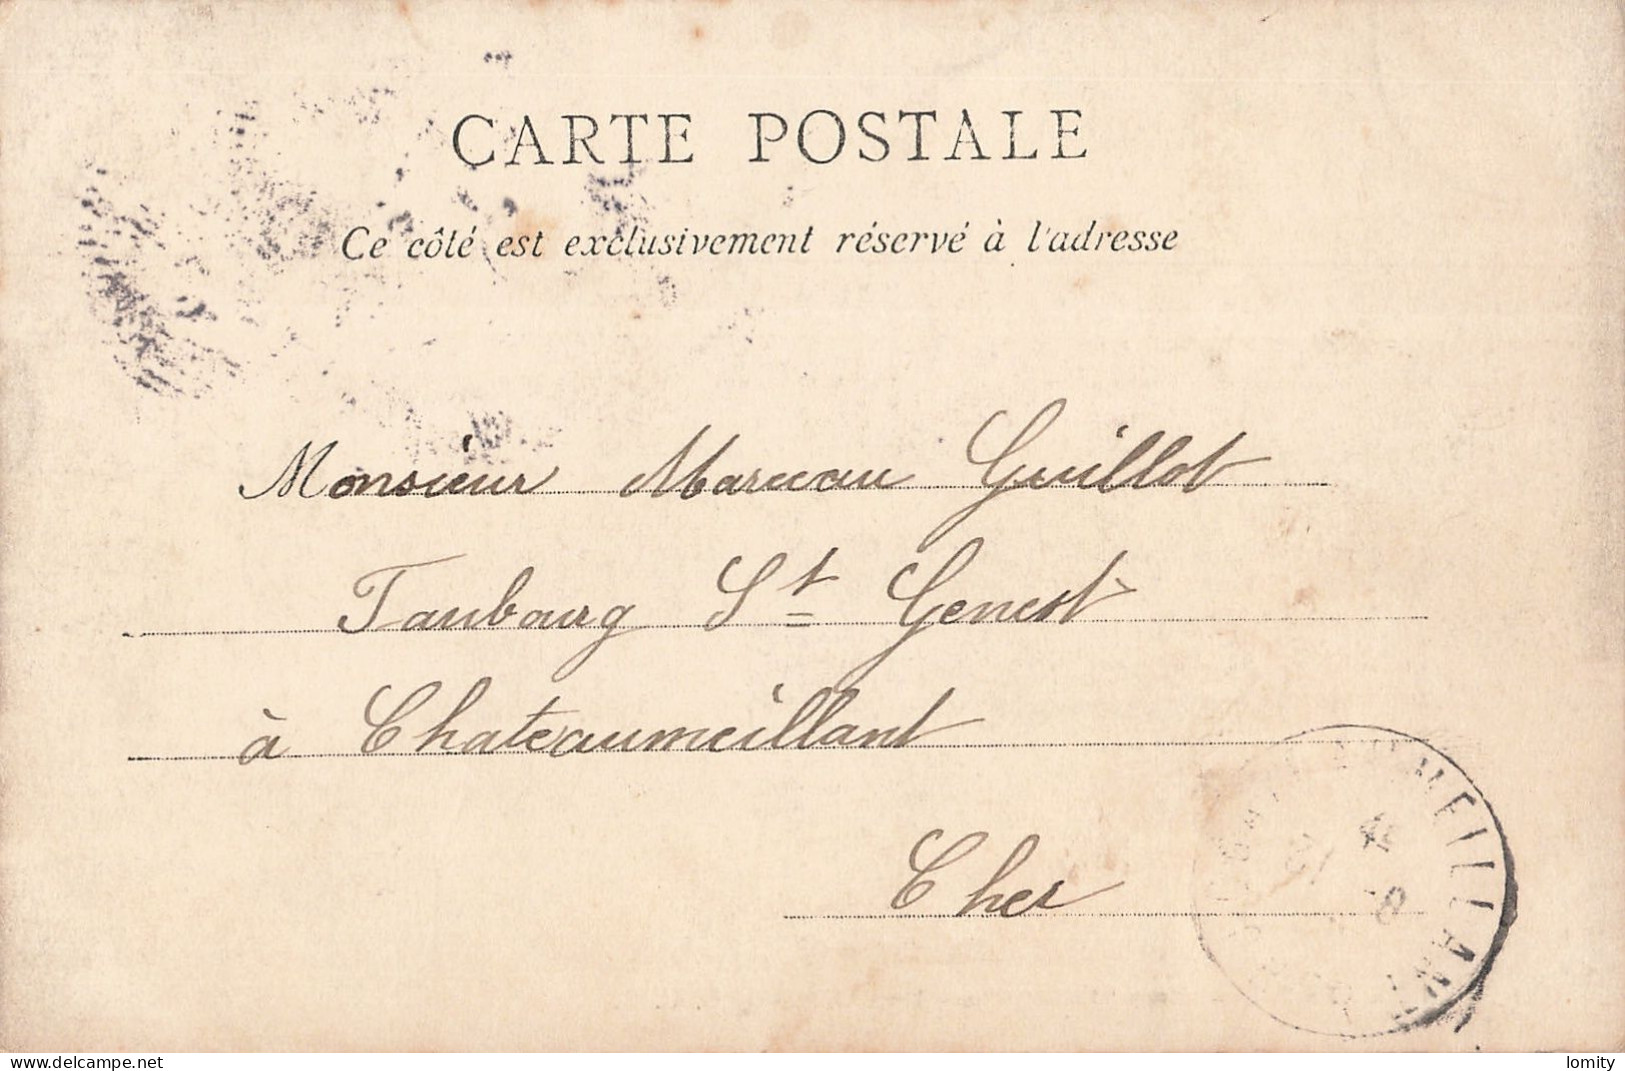 CARTE POSTALE
Ce côté est exclusivement réservé à l'adresse
Monsieur Marceau Guillot
Faubourg St Genest
à Chateaumeillant
Cher
MEILLANT
www.delcampe.net
lomity